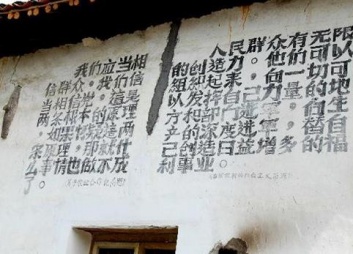 我们应当相
信群众，我们应
当相信党，这是
两条根本的原理
。如果怀疑这两
条原理，那就什
么事情也做不成
了。
人民群众有无限
的创造力。他们可以
组织起来，向一切可
以发挥自己力量的地
方和部门进军，向生
产的深度和广度进军，替自
己创造日益增多的福
利事业。